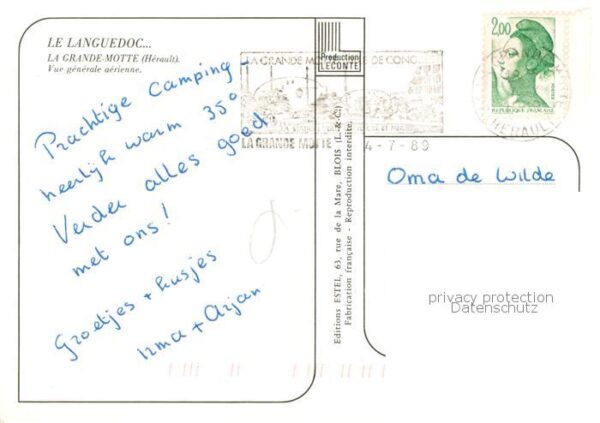 LE LANGUEDOC...
LA GRANDE-MOTTE (Hérault).
Vue générale aérienne.
Prachtige Camping -
heerlijk warm 35°
Verder alles goed
met ons!
Groetjes + kusjes
Irma + Arjan
Production
LECONTE
Editions ESTEL, 63, rue de la Mare, BLOIS (L.-&-C.)
Fabrication française - Reproduction interdite.
LA GRANDE MOTTE
4-7-89
2,00
REPUBLIQUE FRANÇAISE
HERAULT
Oma de Wilde
privacy protection
Datenschutz